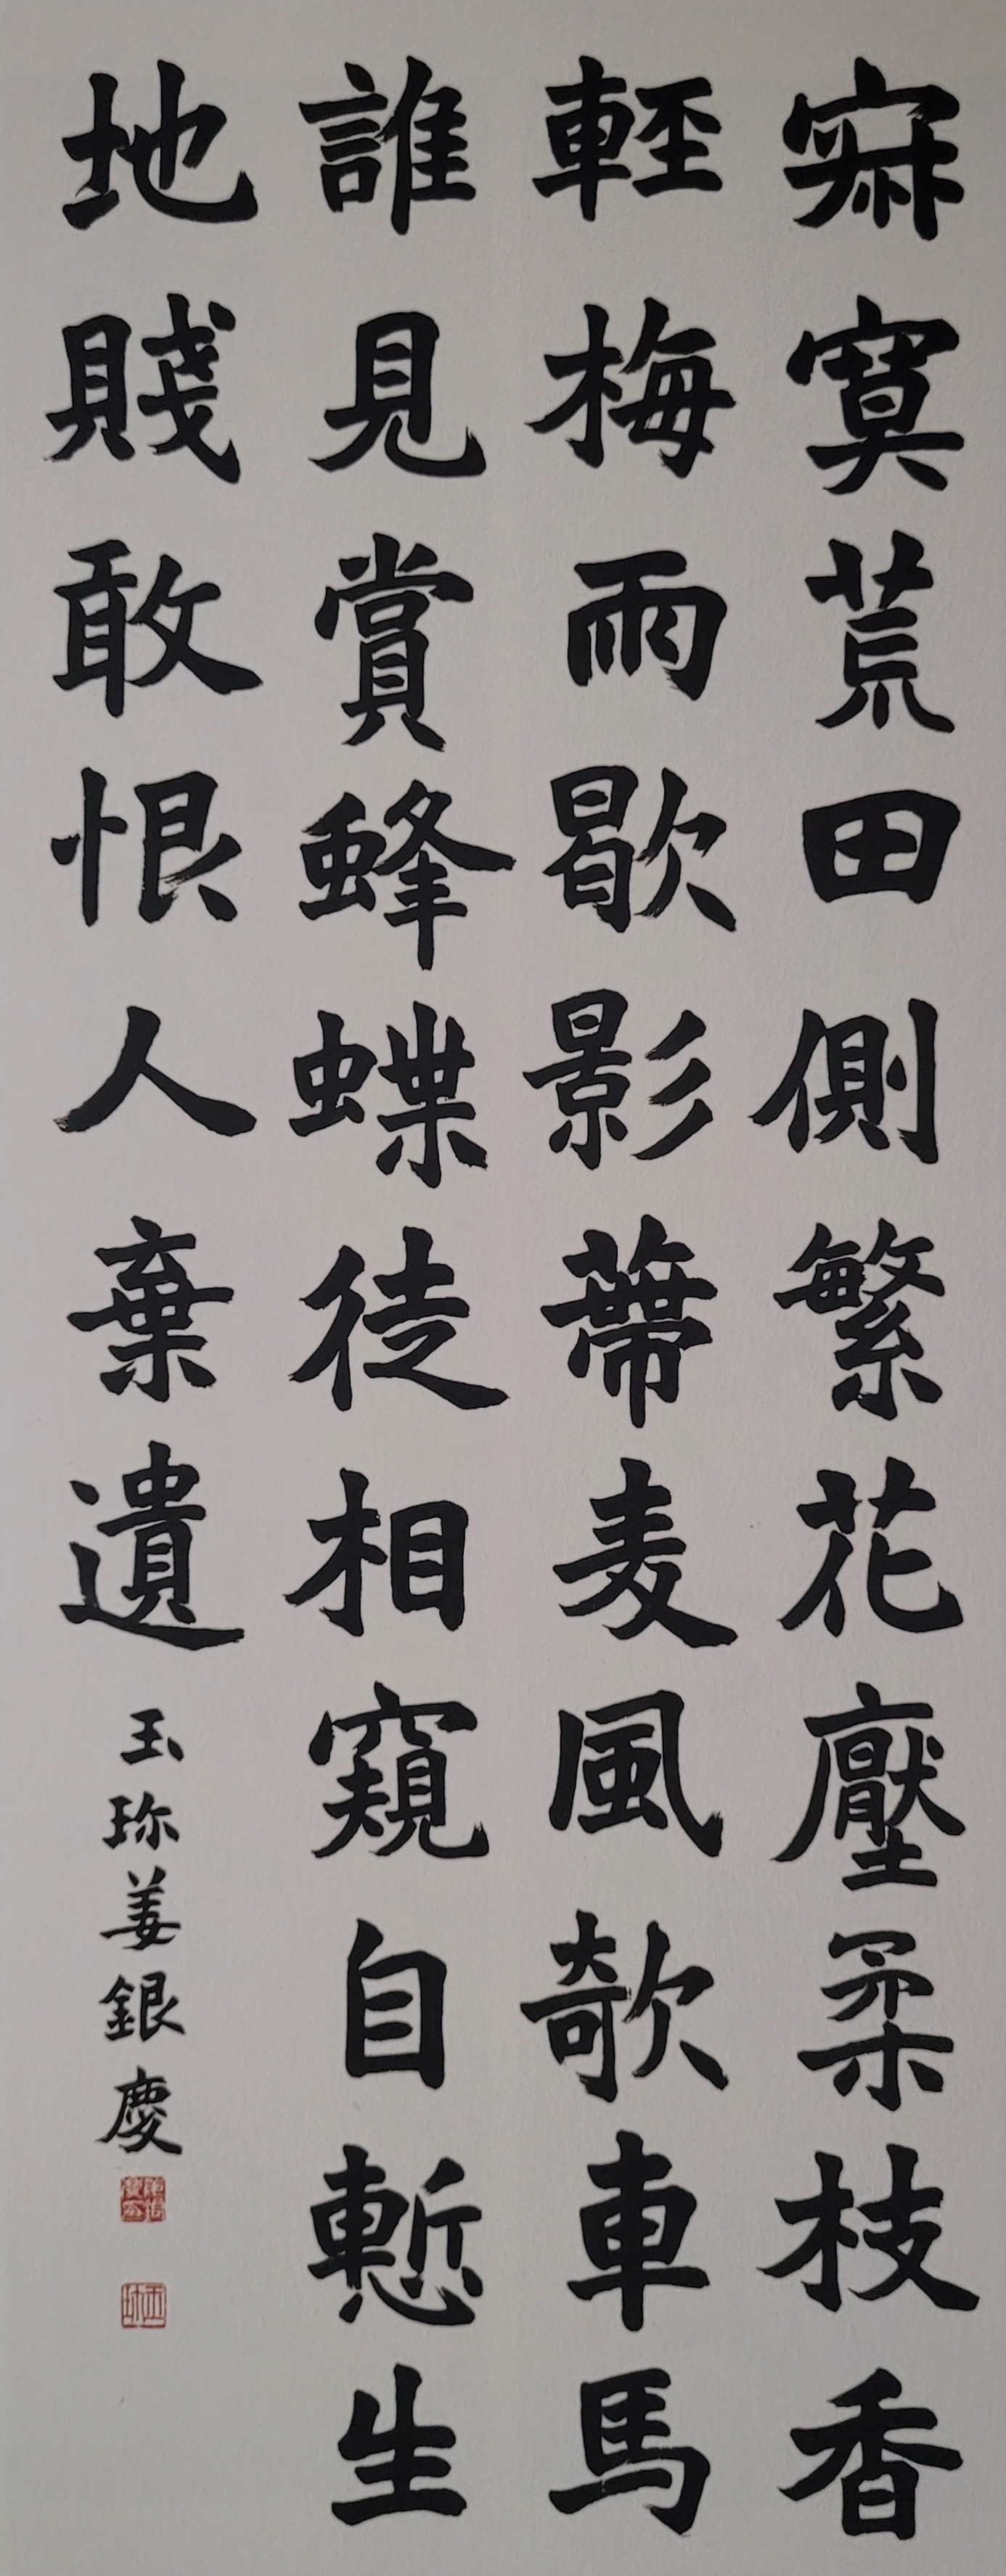 寂寞荒田側繁花壓柔枝香
輕梅雨歇影蔕麦風欹車馬
誰見賞蜂蝶徒相窺自慙生
地賤敢恨人棄遺
玉珎姜銀慶